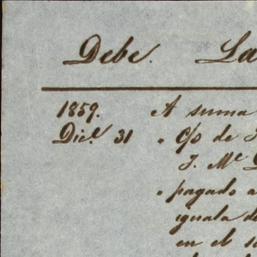 Debe. La
1859. A suma
Dice. 31 " C/o de J
J. Mc
" pagado a
iguala de
en el s